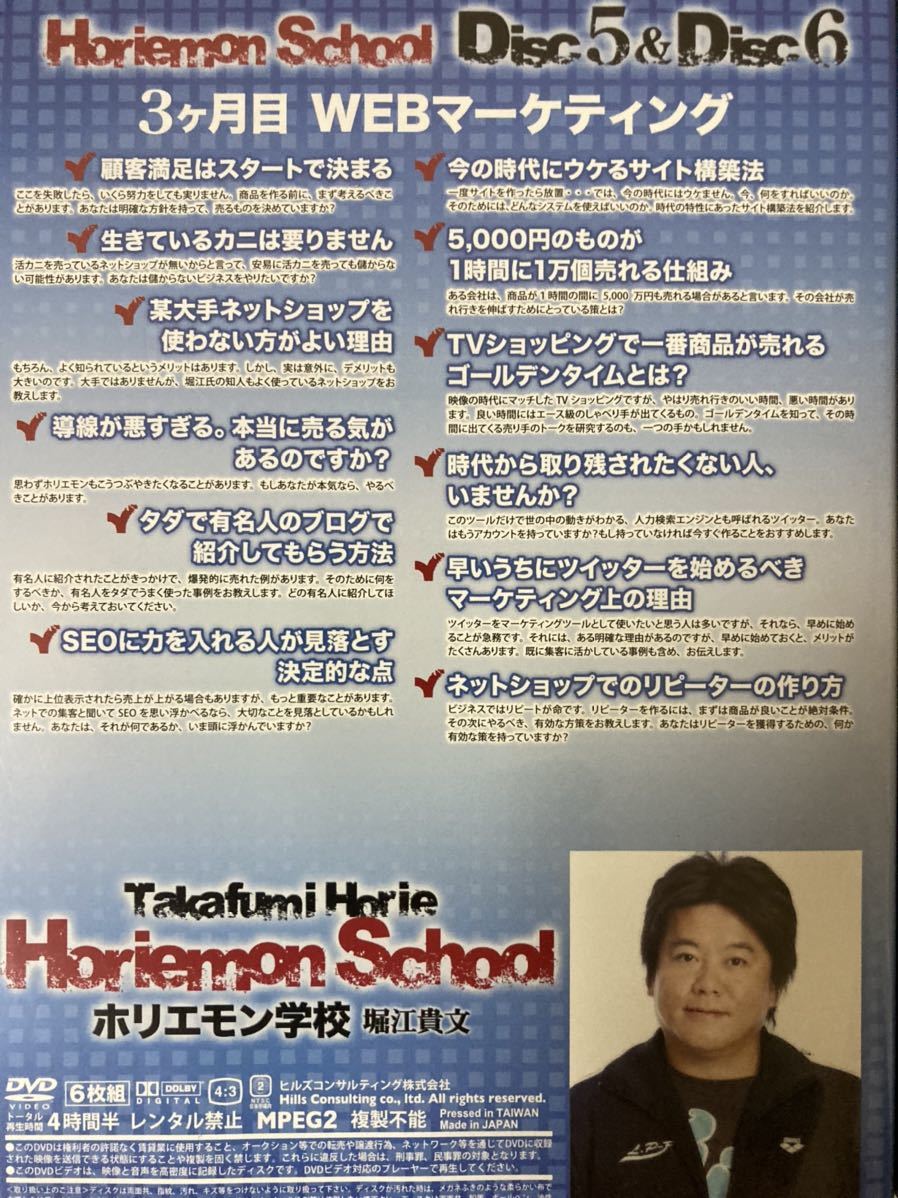 Horiemon School Disc5&Disc6
3ヶ月目 WEBマーケティング
顧客満足はスタートで決まる
ここを失敗したら、いくら努力をしても実りません。商品を作る前に、まず考えるべきこ
とがあります。あなたは明確な方針を持って、売るものを決めていますか?
生きているカニは要りません
活カニを売っているネットショップが無いからと言って、安易に活カニを売っても儲からな
い可能性があります。あなたは儲からないビジネスをやりたいですか?
某大手ネットショップを
使わない方がよい理由
もちろん、よく知られているというメリットはあります。しかし、実は意外に、デメリットも
大きいのです。大手ではありませんが、堀江氏の知人もよく使っているネットショップをお
教えします。
導線が悪すぎる。本当に売る気が
あるのですか?
思わずホリエモンもこうつぶやきたくなることがあります。もしあなたが本気なら、やるべ
きことがあります。
タダで有名人のブログで
紹介してもらう方法
有名人に紹介されたことがきっかけで、爆発的に売れた例があります。そのために何を
するべきか、有名人をタダでうまく使った事例をお教えします。どの有名人に紹介してほ
しいか、今から考えておいてください。
SEOに力を入れる人が見落とす
決定的な点
確かに上位表示されたら売上が上がる場合もありますが、もっと重要なことがあります。
ネットでの集客と聞いてSEOを思い浮かべるなら、大切なことを見落としているかもしれ
ません。あなたは、それが何であるか、いま頭に浮かんでいますか?
今の時代にウケるサイト構築法
一度サイトを作ったら放置・・・では、今の時代にはウケません。今、何をすればいいのか
そのためには、どんなシステムを使えばいいのか。時代の特性にあったサイト構築法を紹介します.
5,000円のものが
1時間に1万個売れる仕組み
ある会社は、商品が1時間の間に 5,000 万円も売れる場合があると言います。その会社が売
れ行きを伸ばすためにとっている策とは?
TVショッピングで一番商品が売れる
ゴールデンタイムとは?
映像の時代にマッチしたTVショッピングですが、やはり売れ行きのいい時間、悪い時間があり
ます。良い時間にはエース級のしゃべり手が出てくるもの。ゴールデンタイムを知って、その時
間に出てくる売り手のトークを研究するのも、一つの手かもしれません。
時代から取り残されたくない人、
いませんか?
このツールだけで世の中の動きがわかる、人力検索エンジンとも呼ばれるツイッター。あなた
はもうアカウントを持っていますか?もし持っていなければ今すぐ作ることをおすすめします。
早いうちにツイッターを始めるべき
マーケティング上の理由
ツイッターをマーケティングツールとして使いたいと思う人は多いですが、それなら、早めに始め
ることが急務です。それには、ある明確な理由があるのですが、早めに始めておくと、メリットが
たくさんあります。既に集客に活かしている事例も含め、お伝えします。
ネットショップでのリピーターの作り方
ビジネスではリピートが命です。リピーターを作るには、まずは商品が良いことが絶対条件。
その次にやるべき、有効な方策をお教えします。あなたはリピーターを獲得するための、何か
有効な策を持っていますか?
Takafumi Horie
Horiemon School
ホリエモン学校 堀江貴文
DVD VIDEO 6枚組 DOLBY DIGITAL 4:3 2 NTSC 日本市場向
ヒルズコンサルティング株式会社
Hills Consulting co., ltd. All rights reserved.
トータル再生時間 4時間半 レンタル禁止 MPEG2 複製不能 Pressed in TAIWAN
Made in JAPAN
●このDVDは権利者の許諾なく賃貸業に使用すること、オークション等での転売や譲渡行為、ネットワーク等を通じてDVDに収録
された映像を送信できる状態にすることや複製を固く禁じます。これらに違反した場合は、刑事罪、民事罪の対象となります。
●このDVDビデオは、映像と音声を高密度に記録したディスクです。DVDビデオ対応のプレーヤーで再生してください。
<取り扱い上のご注意>ディスクは両面共、指紋、汚れ、キズ等をつけないように取り扱って下さい。ディスクが汚れた時は、メガネふきのような柔らかい布で